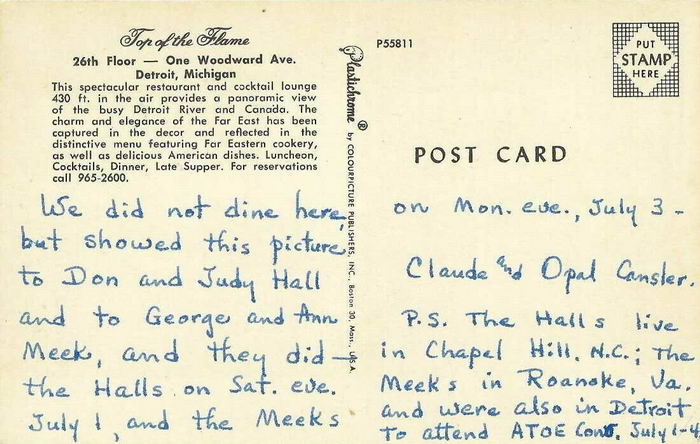 Top of the Flame
26th Floor — One Woodward Ave.
Detroit, Michigan
This spectacular restaurant and cocktail lounge
430 ft. in the air provides a panoramic view
of the busy Detroit River and Canada. The
charm and elegance of the Far East has been
captured in the decor and reflected in the
distinctive menu featuring Far Eastern cookery,
as well as delicious American dishes. Luncheon,
Cocktails, Dinner, Late Supper. For reservations
call 965-2600.
We did not dine here,
but showed this picture
to Don and Judy Hall
and to George and Ann
Meek, and they did —
the Halls on Sat. eve.
July 1, and the Meeks
Plastichrome® by COLOURPICTURE PUBLISHERS, INC., Boston 30, Mass., U.S.A.
P55811
PUT
STAMP
HERE
POST CARD
on Mon. eve., July 3 -
Claude and Opal Cansler.
P.S. The Halls live
in Chapel Hill, N.C.; the
Meeks in Roanoke, Va.
and were also in Detroit
to attend ATOE Conv. July 1-4